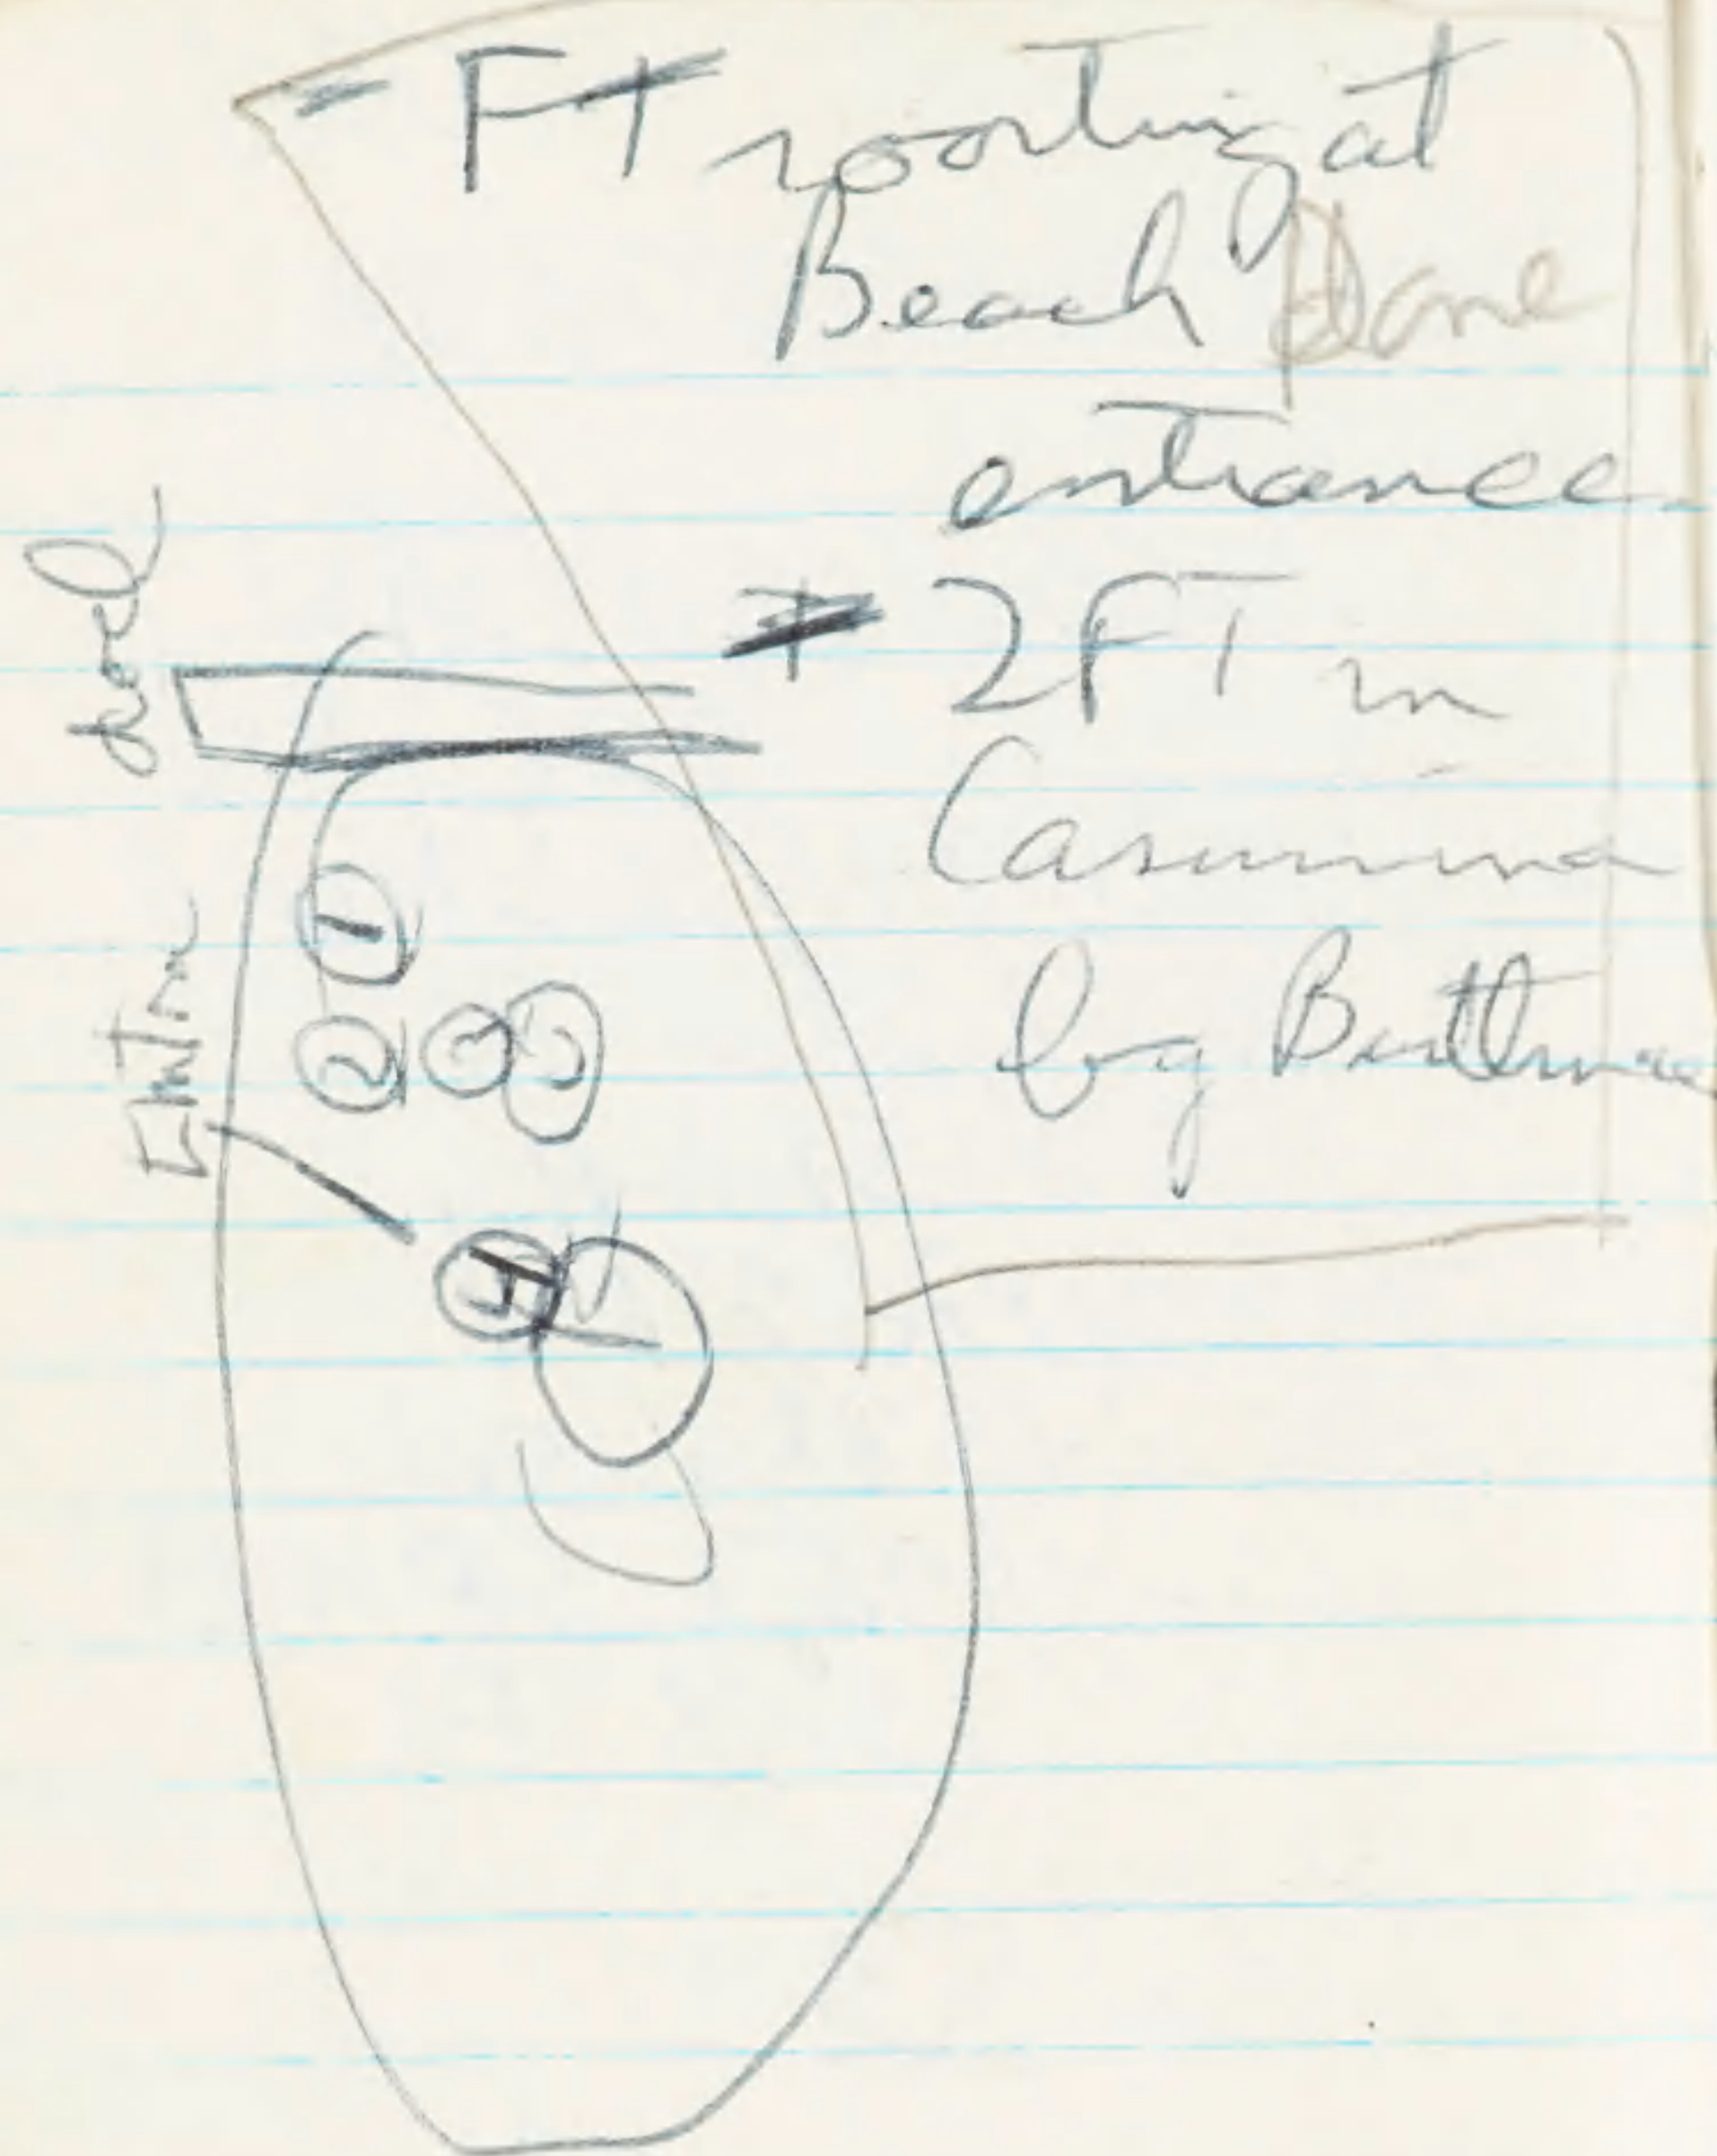 - FT roosting at
Beach Plane
entrance
* 2 FT in
Casurina
by
dock
Entra
1
2 3
4